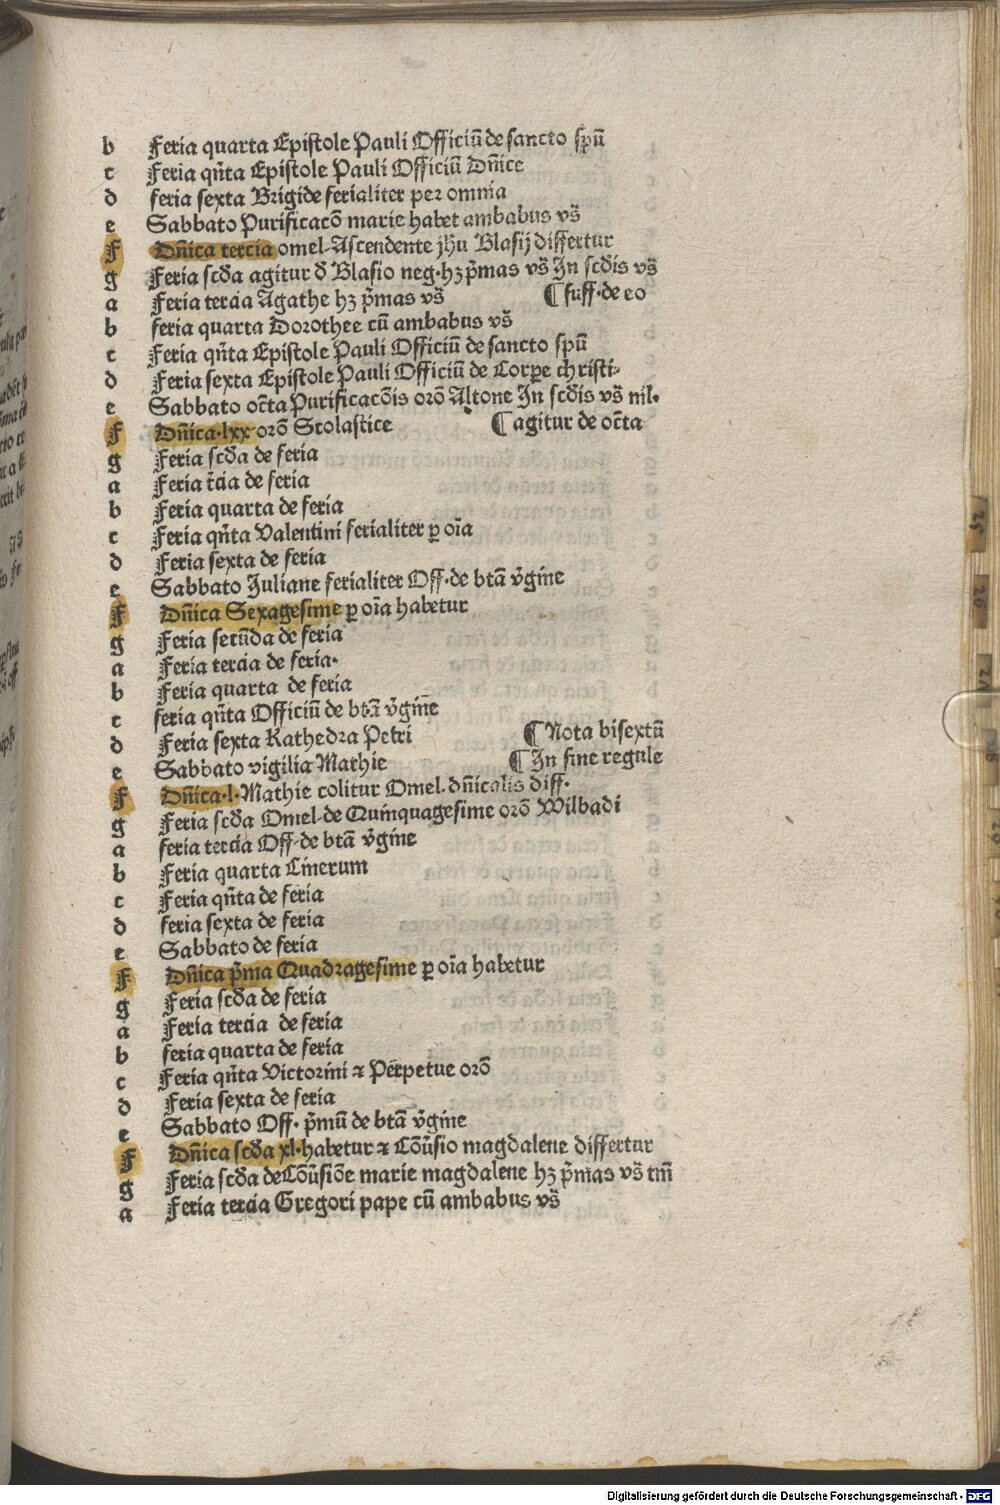 b Feria quarta Epistole Pauli Officiū de sancto spū
c Feria qñta Epistole Pauli Officiū Dñice
d feria sexta Brigide ferialiter per omnia
e Sabbato Purificacõ marie habet ambabus vs̄
F Dñica tercia omel. Ascendente jhu Blasij differtur
g Feria scd̄a agitur d̄ Blasio neg. hꝫ p̄mas vs̄ In scd̄is vs̄
a Feria tercia Agathe hꝫ p̄mas vs̄ ¶ suff. de eo
b feria quarta Dorothee cū ambabus vs̄
c Feria qñta Epistole Pauli Officiū de sancto spū
d Feria sexta Epistole Pauli Officiū de Corꝑe christi
e Sabbato oct̄a Purificacõis orõ Altone In scd̄is vs̄ nil.
F Dñica .lxx orõ Scolastice ¶ agitur de oct̄a
g Feria scd̄a de feria
a Feria t̄cia de feria
b Feria quarta de feria
c Feria qñta Valentini ferialiter ꝑ oīa
d Feria sexta de feria
e Sabbato Juliane ferialiter Off. de btā v̄gīne
F Dñica Sexagesime ꝑ oīa habetur
g Feria secūda de feria
a Feria tercia de feria.
b Feria quarta de feria
c feria qñta Officiū de btā v̄gīne
d Feria sexta Kathedra Petri ¶ Nota bisextū
e Sabbato vigilia Mathie ¶ In fine regule
F Dñica .l. Mathie colitur Omel. dñicalis diff.
g Feria scd̄a Omel. de Quinquagesime orõ Wilbadi
a feria tercia Off. de btā v̄gīne
b Feria quarta Cinerum
c Feria qñta de feria
d feria sexta de feria
e Sabbato de feria
F Dñica p̄ma Quadragesime ꝑ oīa habetur
g Feria scd̄a de feria
a Feria tercia de feria
b feria quarta de feria
c Feria qñta Victorini ⁊ Perpetue orõ
d Feria sexta de feria
e Sabbato Off. p̄mū de btā v̄gīne
F Dñica scd̄a xl. habetur ⁊ Cõūsio magdalene differtur
g Feria scd̄a de Cõūsiõe marie magdalene hꝫ p̄mas vs̄ tm̄
a Feria tercia Gregori pape cū ambabus vs̄
Digitalisierung gefördert durch die Deutsche Forschungsgemeinschaft - DFG